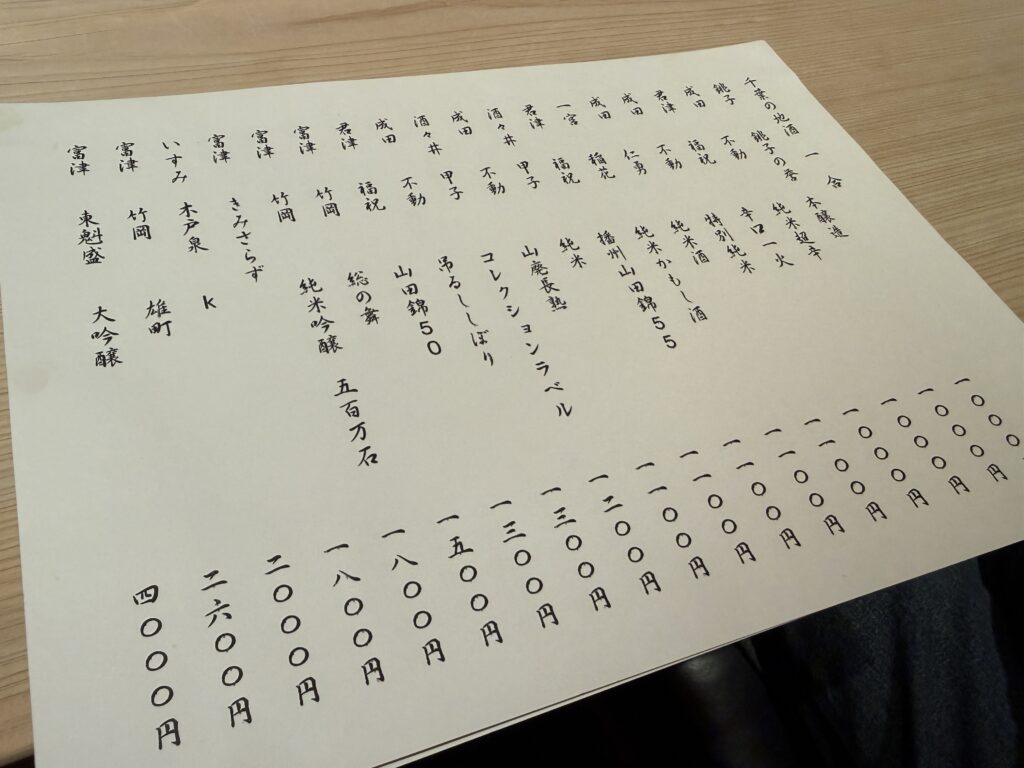 千葉の地酒 一合
銚子 銚子の誉 本醸造 一〇〇〇円
成田 不動 純米超辛 一〇〇〇円
君津 福祝 辛口一火 一〇〇〇円
成田 不動 特別純米 一〇〇〇円
成田 仁勇 純米酒 一一〇〇円
一宮 稲花 純米かもし酒 一一〇〇円
君津 福祝 播州山田錦55 一一〇〇円
酒々井 甲子 純米 一一〇〇円
成田 不動 山廃長熟 一一〇〇円
酒々井 甲子 コレクションラベル 一二〇〇円
成田 不動 吊るししぼり 一三〇〇円
君津 福祝 山田錦50 一三〇〇円
富津 竹岡 総の舞 一五〇〇円
富津 竹岡 純米吟醸 五百万石 一八〇〇円
富津 きみさらず 一八〇〇円
いすみ 木戸泉 k 二〇〇〇円
富津 竹岡 雄町 二六〇〇円
富津 東魁盛 大吟醸 四〇〇〇円